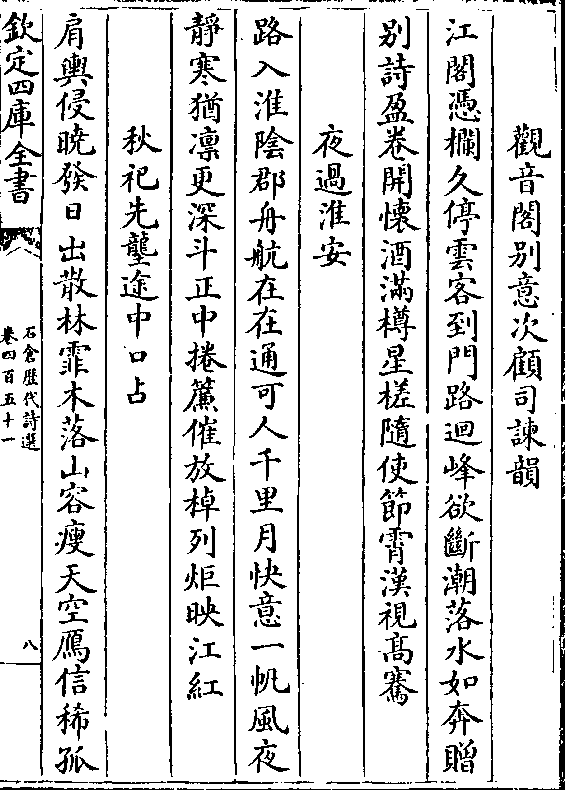 觀音閣别意次顧司諫韻
江閣憑欄久停雲客到門路迴峰欲斷潮落水如奔贈
别詩盈卷開懷酒滿樽星槎隨使節霄漢視髙騫
夜過淮安
路入淮陰郡舟航在在通可人千里月快意一帆風夜
靜寒猶凛更深斗正中捲簾催放棹列炬映江紅
秋祀先壟途中口占
肩輿侵曉發日出散林霏木落山容瘦天空鴈信稀孤
欽定四庫全書
石倉歴代詩選
卷四百五十一
八